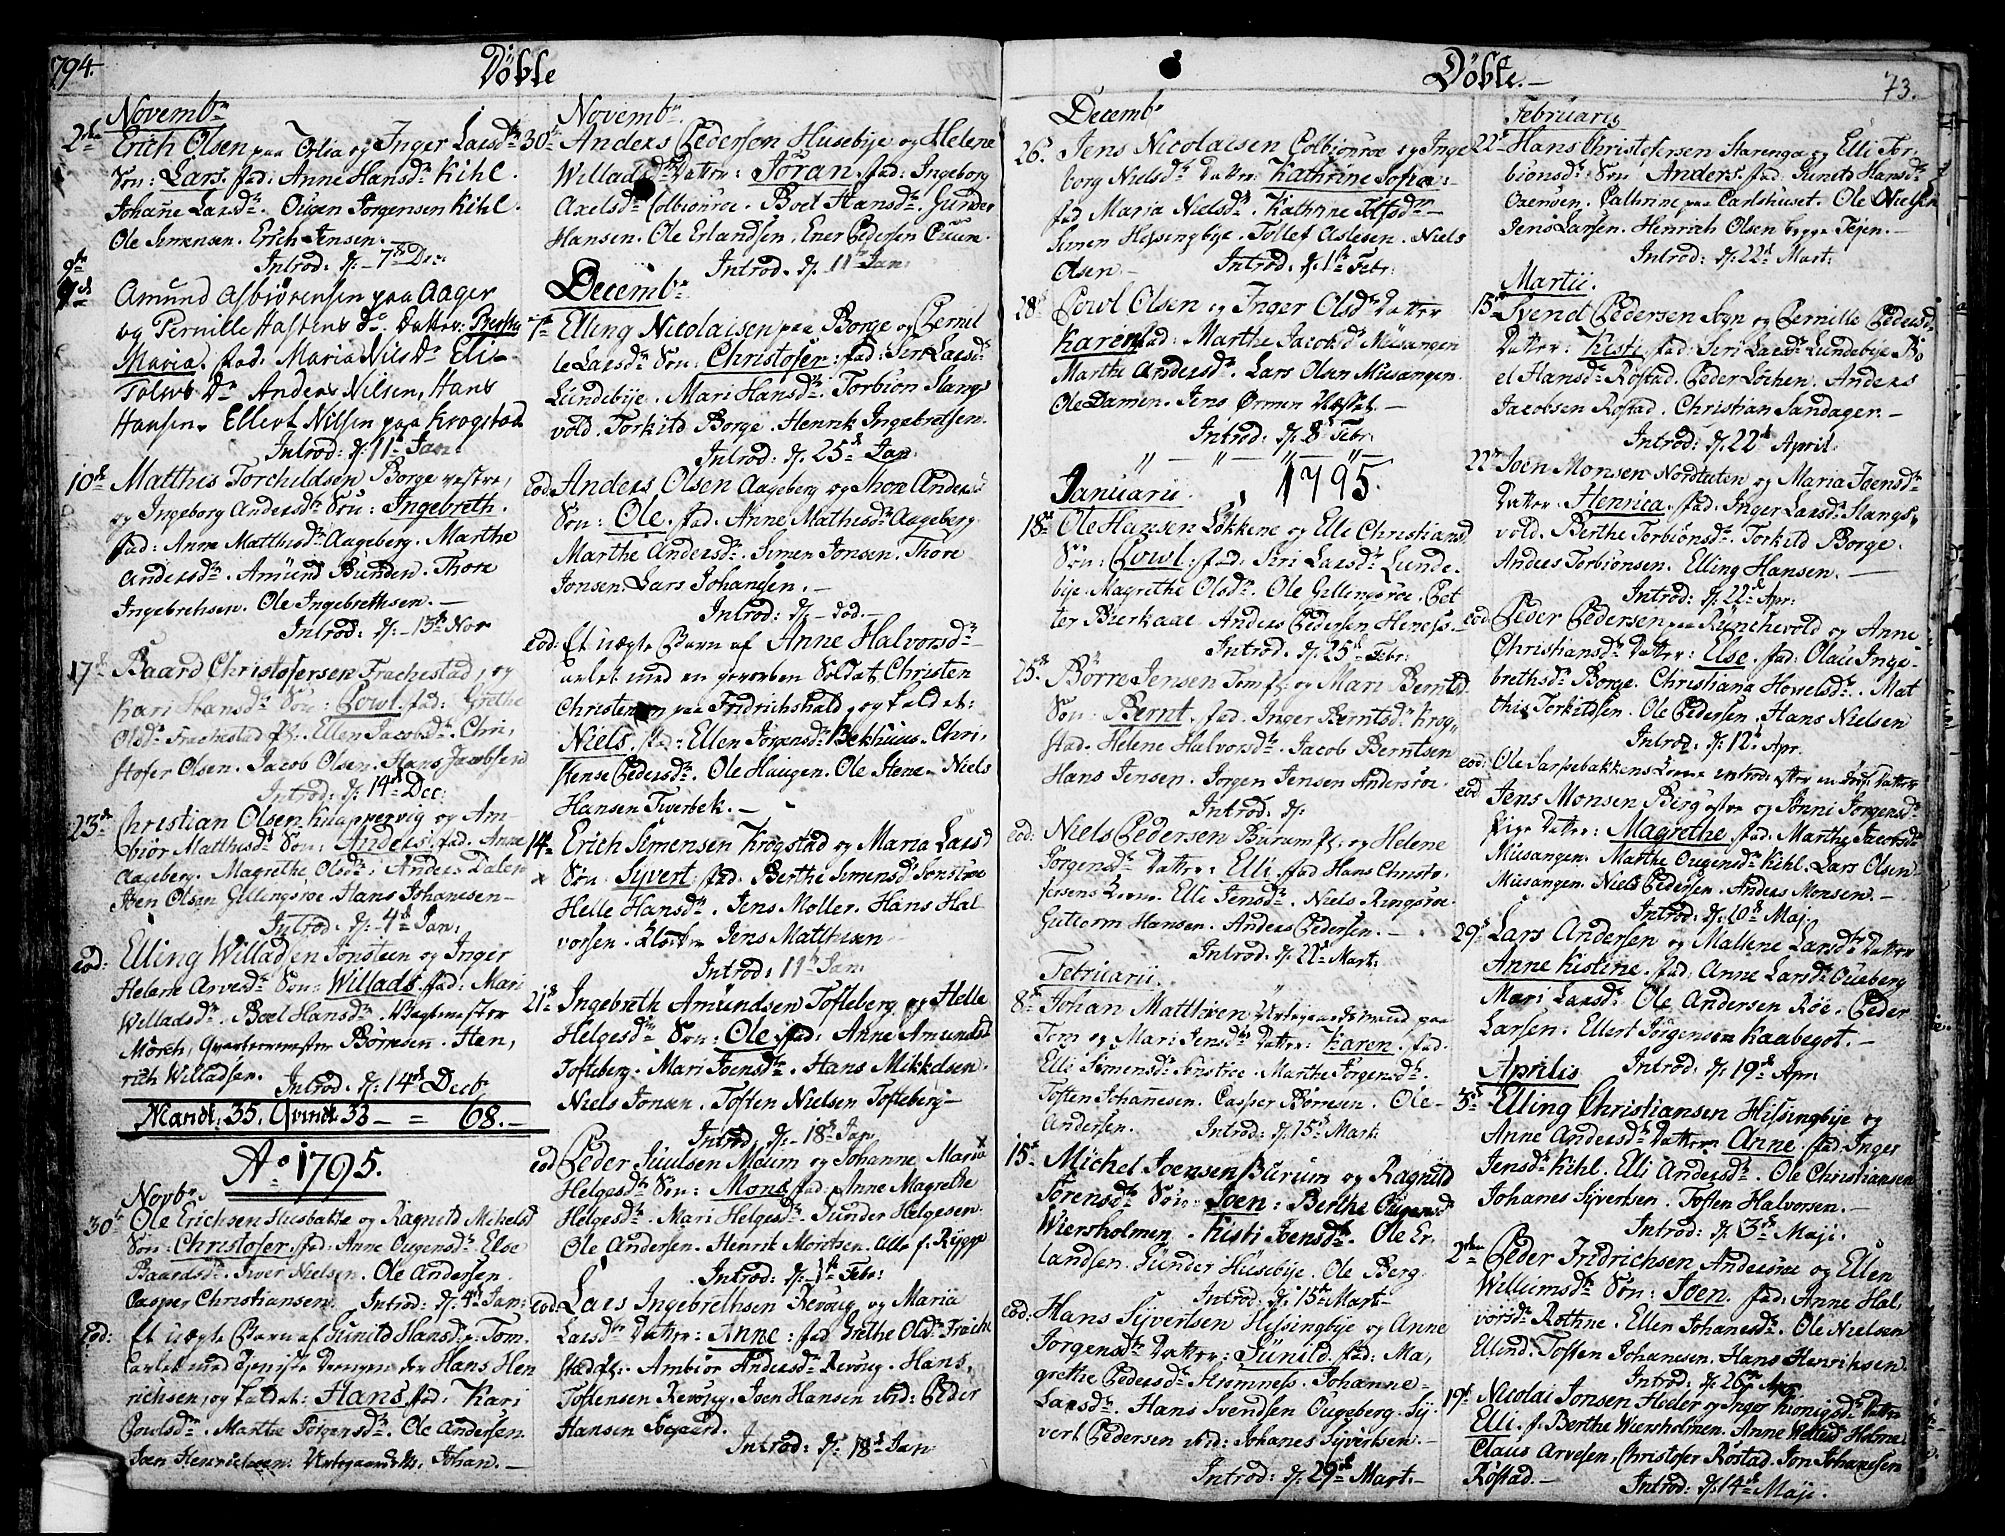 1794.
Döbte
Novembr
2de Erich Olsen paa Ortia og Inger Larsdr
Sön: Lars. fad: Anne Hansdr Kihl.
Johañe Larsdr. Ougen Jörgensen Kihl.
Ole Simensen. Erich Jensen.
Introd: d: 7de Dec:
9de Amund Asbiörensen paa Aager
og Pernille Hastens Dr. Datter: Berthe
Maria. fad: Maria Niels Dr Eli
Tolevs Dr Anders Nilsen, Hans
Hansen. Ellert Nilsen paa Krogstad
Introd: d: 11te Jan:
10de Matthis Torchildsen Borge vestre,
og Ingeborg Andersdr Sön: Ingebreth.
fad: Anne Matthisdr Aageberg. Marthe
Andersdr. Amünd Bunden. Thore
Ingebrehsen. Ole Ingebrethsen.
Introd: d: 13de Nov
17de Baard Christofersen Frachestad, og
Kari Hansdr Sön: Powl. fad: Grethe
Olsdr Frachestad pl: Ellen Jacobsdr. Chri,
stofer Olsen. Jacob Olsen. Hans Jacobsen
Introd: d: 14de Dec:
23de Christian Olsen Knappervig og Am-
biör Matthisdr Sön: Anders. fad: Anne
Aageberg. Magrethe Olsdr. Anders Dalen
Joen Olsen Gillingsröe. Hans Johanesen
Introd: d: 4de Jan:
eod: Elling Willadsen Jonsteen og Inger
Helene Arvesdr Sön: Willads. fad: Mari
Willadsdr. Boel Hansdr. Vagtmester
Mörch, Qvartermester Börresen. Hen,
rich Willadsen. Introd: d: 14de Decb
Mandk: 35. Qvindk: 33 = 68.
Ao 1795.
Novbr.
30te Ole Erichsen Husbakke og Ragnild Mikelsd
Sön: Christofer. fad: Anne Ougensdr. Else
Baardsdr. Iver Nielsen. Ole Andersen.
Casper Christiansen. Introd: d: 4de Jan:
eod: Et uægte Barn af Gunild Hansdr Tom.
avlet med tieniste Drengen der Hans Hen
richsen, og kaldet: Hans. fad: Kari
Poulsdr. Marthe Jörgensdr. Ole Andersen
Joen Henrichsen. Johan.
Novembr.
30te Anders Pedersen Husebÿe og Helene
Willadsdr Datter: Jöran. fad: Ingeborg
Axelsdr Colbiönröe. Boel Hansdr. Gunder
Hansen. Ole Erlandsen. Ener Pedersen Oüun.
Introd: d: 11te Jan:
Decembr
7de Elling Nicolaisen paa Borge og Pernil
le Larsdr Sön: Christofer. fad: Siri Larsdr
Lundebÿe. Mari Hansdr. Torbiön Slangs
vold. Torkild Borge. Henrik Ingebretsen.
Introd: d: 25de Jan:
eod: Anders Olsen Aageberg og Thore Andersd
Sön: Ole. fad: Anne Mathisdr Aageberg.
Marthe Andersdr. Simen Jonsen. Thore
Jonsen. Lars Johanesen.
Introd: d: eod.
eod: Et uægte Barn af Anne Halvorsdr
avlet med en geworben Soldat Christen
Christensen paa Fridrichshald, og kaldet:
Niels. fad: Ellen Jörgensdr Bekhuus. Chri,
stense Pedersdr. Ole Haugen. Ole Stene. Niels
Hansen Tverbek.
14de Erich Simensen Krogstad og Maria Larsd
x Sön: Syvert. fad: Berthe Simensdr Sonströe
Helle Hansdr. Jens Moller. Hans Hal
vorsen. Jens Matthisen
Introd: 11te Jan:
21de Ingebreth Amundsen Tofteberg og Helle
Helgesdr Sön: Ole. fad: Anne Amundsd
Tofteberg. Mari Joensdr. Hans Mikkelsen.
Niels Jonsen. Toften Nielsen Tofteberg
Introd: d: 18de Jan
eod Peder Juulsen Meum og Johanne Maria
Helgesdr Sön: Mons. fad: Anne Magrethe
Helgesdr. Mari Helgesdr. Gunder Helgesen.
Ole Andersen. Henrik Moritsen. alle f. Rygge
Introd: d: 1te Febr:
eod: Lars Ingebrethsen Revoug og Maria
Larsdr Datter: Anne: fad Grethe Olsdr Frache
stad pl: Ambiör Andersdr Revoug. Hans,
Toftensen Revoug. Joen Hansen ibid: Peder
Hansen Soegaard.
Introd: d: 18de Jan
Döbte.
73.
Decembr
26. Jens Nicolaisen Colbiönröe og Inge
borg Nielsdr Datter: Kathrine Sofia:
fad Maria Nielsdr. Kathrine Tolfsdr
Simen Hissingbÿe. Tollef Aslesen. Niels
Olsen. Introd: d: 1te Febr:
28de Powl Olsen og Inger Olsdr Datter
Karen. fad: Marthe Jacobsdr Müsangen
Marthe Andersdr. Lars Olsen Müsangen.
Ole Damen. Jens Örmen Væstet.
Introd: d: 8de Febr:
1795.
Januarii
18de Ole Hansen Lökkene og Elle Christiansd
Sön: Powl. fad: Siri Larsdr Lunde-
bÿe. Magrethe Olsdr. Ole Gillingsröe. Pet
ter Bierkaae. Anders Pedersen Heness.
Introd: d: 25de Febr:
25de Börre Jensen Tom pl: og Mari Berntsd.
Sön: Bernt. fad: Inger Berntsdr Krog,
stad. Helene Halvorsdr. Jacob Berntsen
Hans Jensen. Jörgen Jensen Andersröe.
Introd: d:
eod: Niels Pedersen Burum pl: og Helene
Jörgensdr Datter: Elli. fad Hans Christo,
fersens Kone. Elli Jensdr. Niels Ringsröe
Guttorm Hansen. Anders Pedersen.
Introd: d: 22de Mart:
Februarii.
8de Johan Matthisen paa
Tom og Mari Jensdr Datter: Karen. fad:
Elli Simensdr Sonströe. Marthe Jörgensdr.
Toften Johanesen. Casper Börresen. Ole
Andersen. Introd: d: 15de Mart:
15de Michel Joensen Burum og Ragnild
Sörensdr Sön: Joen: Berthe Ougensd
Wiersholmen. Kisti Joensdr. Ole Er,
landsen. Günder Hüsebÿe. Ole Berg.
Introd: d: 15de Mart
eod: Hans Syvertsen Hissingbÿe og Anne
Jörgensdr Datter: Günild. fad: Ma,
grethe Pedersdr Humness. Johanne
Larsdr. Hans Svendsen Ougeberg. Sÿ
vert Pedersen ibid: Johanes Sÿvertsen.
Introd: d: 29de Mart.
Februarij
22de Hans Christofersen Starenga og Elli Tor
biönsdr Sön Anders. fad: Gunild Hansdr
Oaeröen. Cathrine paa Carlshuset. Ole Nielsen
Jens Larsen. Henrich Olsen begge Tejen.
Introd: d: 22de Mart:
Martii.
15de Svend Pedersen Sogn og Pernille Pedersd.
Datter: Kisti. fad: Siri Larsdr Lundebÿe. Bo
el Hansdr Röstad. Peder Löchen. Anders
Jacobsen Röstad. Christian Sandager.
Introd: d: 22de April:
22de Joen Monsen Nordtaten og Maria Joensdr
Datter: Henrica. fad: Inger Larsdr Slangs,
vold. Berthe Torbiönsdr. Torkild Borge.
Anders Torbiönsen. Elling Hansen.
Introd: d: 22de Apr:
eod: Peder Pedersen paa Rünchevold og Anne
Christiansdr Datter: Else. fad: Olau Inge-
brethsdr Borge. Christiana Hovelsdr. Mat
this Torkildsen. Ole Pedersen. Hans Nielsen
Introd: d: 12te Apr.
eod: Ole Sarpebakkens Kone introd: efter en Datter
eod. Jens Monsen Berg östre og Jönni Jörgensdr
Datter: Magrethe. fad: Marthe Jacobsdr
Müsangen. Marthe Ougensdr Kihl. Lars Olsen
Müsangen. Niels Pedersen. Anders Monsen.
Introd: d: 10de Maj:
29de Lars Andersen og Mallene Larsdr Datter
Anne Kistine. fad: Anne Larsdr Oueberg
Mari Larsdr. Ole Andersen Röe. Peder
Larsen. Ellert Jörgensen Kaabegot.
Introd: d: 19de Apr:
Aprilis
3de Elling Christiansen Hissingbÿe og
Anne Andersdr Datter Anne. fad: Inger
Jensdr Kihl. Elli Andersdr. Ole Christiansen
Johanes Sÿvertsen. Toften Halvorsen.
Introd: d: 3de Maji.
2den Peder Fridrichsen Andersröe og Ellen
Willumsdr Sön: Joen. fad: Anne Hal
vorsdr Rothne. Ellen Johanesdr. Ole Nielsen
Ellind. Toften Johanesen. Hans Henrichsen.
Introd: d: 26de Apr.
19de Nicolai Jonsen Höler og Inger Datter
Elli. f. Berthe Wiersholmen. Anne Holme
Claus Arvesen, Christofer Röstad. Jon Johanesen
Röstad. Introd: d: 14de Maji.